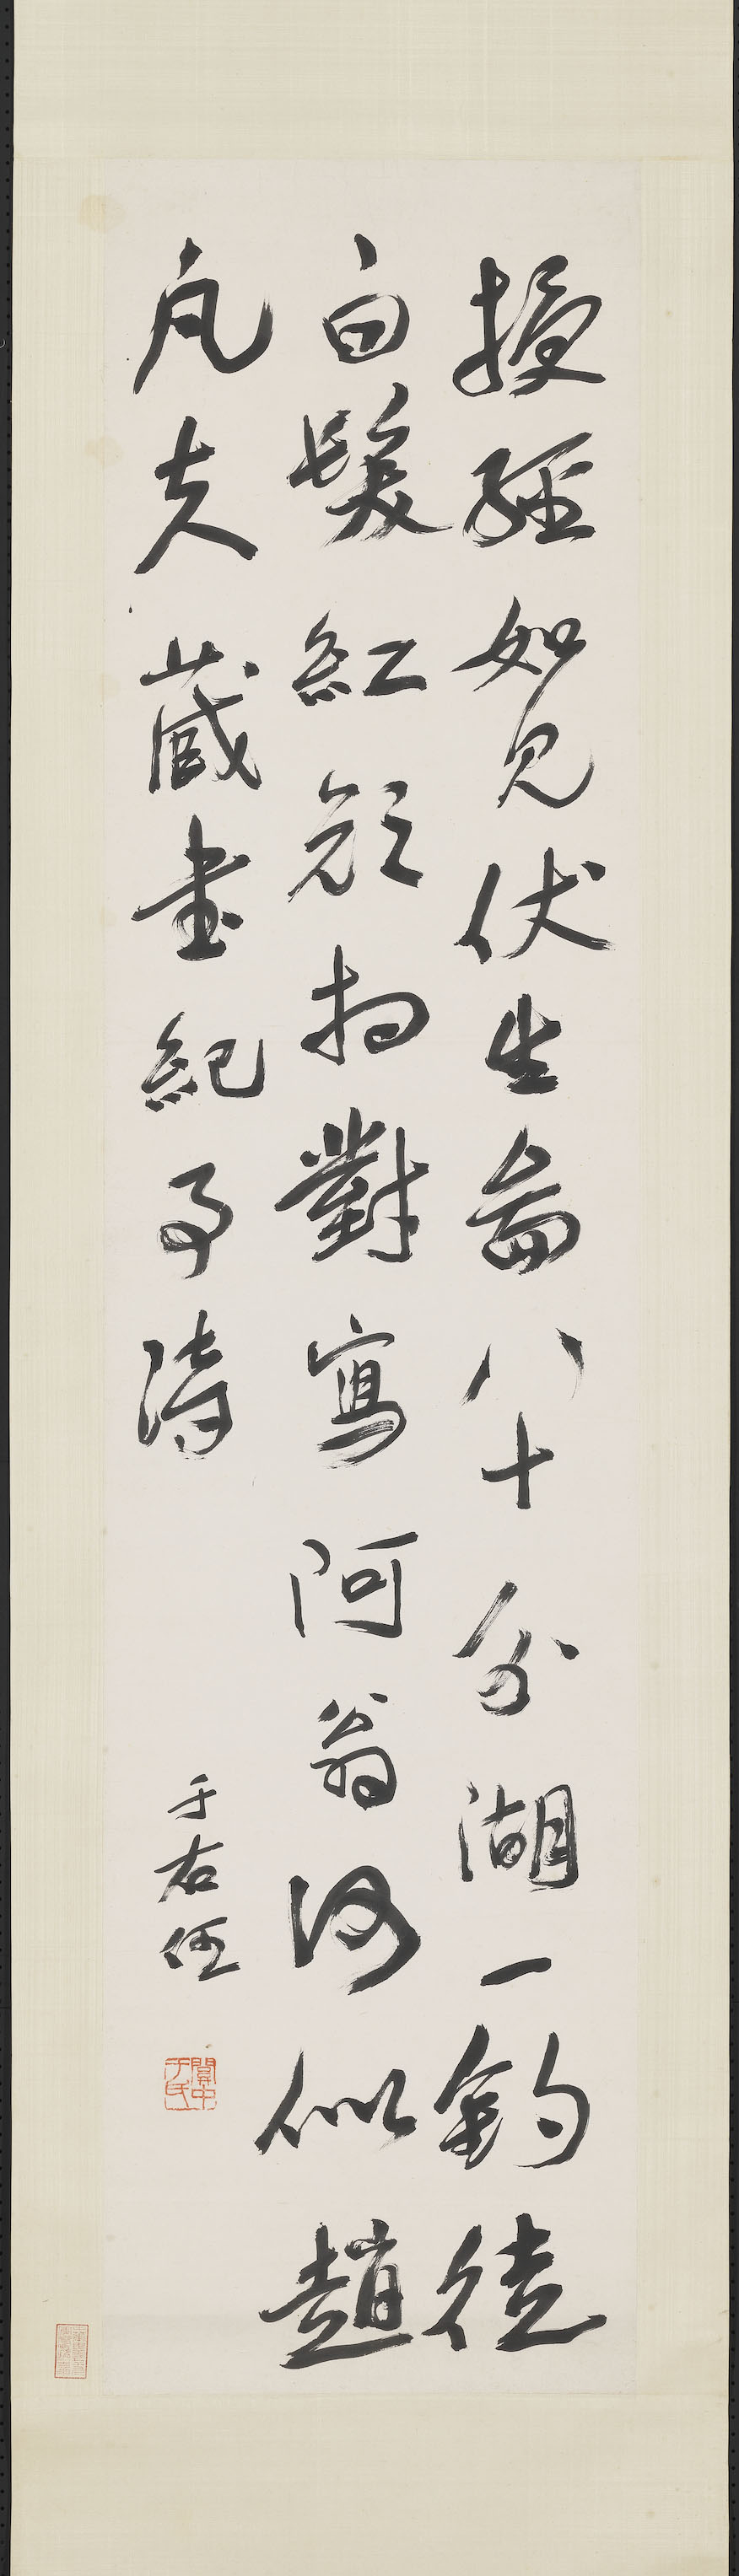 授經如見伏生圖八十分湖一釣徒
白髮紅顏相對寫阿翁何似趙
凡夫藏書紀事詩
于右任
關中于氏